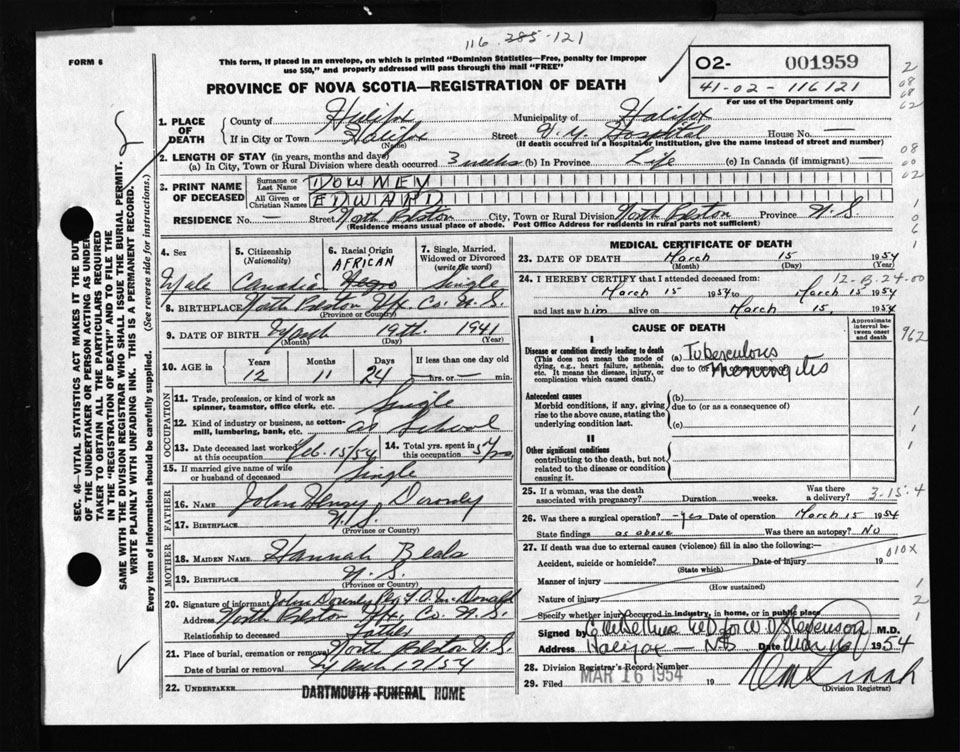 116-285-121
FORM 6
This form, if placed in an envelope, on which is printed "Dominion Statistics—Free, penalty for improper
use $50," and properly addressed will pass through the mail "FREE"
PROVINCE OF NOVA SCOTIA—REGISTRATION OF DEATH
02- 001959
41-02-116121
For use of the Department only
1. PLACE OF DEATH County of Halifax Municipality of Halifax
If in City or Town Halifax (Name) Street Hospital House No. —
(If death occurred in a hospital or institution, give the name instead of street and number)
2. LENGTH OF STAY (in years, months and days)
(a) In City, Town or Rural Division where death occurred 3 weeks (b) In Province Life (c) In Canada (if immigrant) —
3. PRINT NAME OF DECEASED Surname or Last Name DOWNEY
All Given or Christian Names EDWARD
RESIDENCE No. — Street North Preston City, Town or Rural Division North Preston Province N.S.
(Residence means usual place of abode. Post Office Address for residents in rural parts not sufficient)
4. Sex Male
5. Citizenship (Nationality) Canadian
6. Racial Origin AFRICAN Negro
7. Single, Married, Widowed or Divorced (write the word) Single
8. BIRTHPLACE North Preston Hfx. Co. N.S.
(Province or Country)
9. DATE OF BIRTH March 19th 1941
(Month) (Day) (Year)
10. AGE in Years 12 Months 11 Days 24 If less than one day old — hrs. or — min.
OCCUPATION
11. Trade, profession or kind of work as spinner, teamster, office clerk, etc. Single
12. Kind of industry or business, as cotton-mill, lumbering, bank, etc. at School
13. Date deceased last worked at this occupation Feb. 15/54
14. Total yrs. spent in this occupation
15. If married give name of wife or husband of deceased Single
FATHER
16. NAME John Henry Downey
17. BIRTHPLACE N.S.
(Province or Country)
MOTHER
18. MAIDEN NAME Hannah Beals
19. BIRTHPLACE N.S.
(Province or Country)
20. Signature of informant John Downey
Address North Preston Hfx. Co. N.S.
Relationship to deceased Father
21. Place of burial, cremation or removal North Preston N.S.
Date of burial or removal March 17/54
22. UNDERTAKER DARTMOUTH FUNERAL HOME
MEDICAL CERTIFICATE OF DEATH
23. DATE OF DEATH March 15 1954
(Month) (Day) (Year)
24. I HEREBY CERTIFY that I attended deceased from:
March 15 1954 to March 15 1954
and last saw him alive on March 15, 1954
CAUSE OF DEATH
Approximate interval between onset and death
I
Disease or condition directly leading to death (a) Tuberculous
(This does not mean the mode of dying, e.g., heart failure, asthenia, etc. It means the disease, injury, or complication which caused death.)
due to (or as a consequence of) Meningitis
Antecedent causes
Morbid conditions, if any, giving rise to the above cause, stating the underlying condition last.
(b)
due to (or as a consequence of)
(c)
II
Other significant conditions
contributing to the death, but not related to the disease or condition causing it.
25. If a woman, was the death associated with pregnancy? Duration weeks. Was there a delivery? 3-15-4
26. Was there a surgical operation? —yes Date of operation March 15 1954
State findings as above Was there an autopsy? NO
27. If death was due to external causes (violence) fill in also the following:—
Accident, suicide or homicide? (State which) Date of injury 19
Manner of injury (How sustained)
Nature of injury
Specify whether injury occurred in industry, in home, or in public place
Signed by for W. D. Stevenson M.D.
Address Halifax — NS Date Mar 16 1954
28. Division Registrar's Record Number
29. Filed MAR 16 1954 19
(Division Registrar)
SEC. 46—VITAL STATISTICS ACT MAKES IT THE DUTY
OF THE UNDERTAKER OR PERSON ACTING AS UNDER-
TAKER TO OBTAIN ALL THE PARTICULARS REQUIRED
IN THE "REGISTRATION OF DEATH" AND TO FILE THE
SAME WITH THE DIVISION REGISTRAR WHO SHALL ISSUE THE BURIAL PERMIT.
WRITE PLAINLY WITH UNFADING INK. THIS IS A PERMANENT RECORD.
Every item of information should be carefully supplied. (See reverse side for instructions.)
962
010X